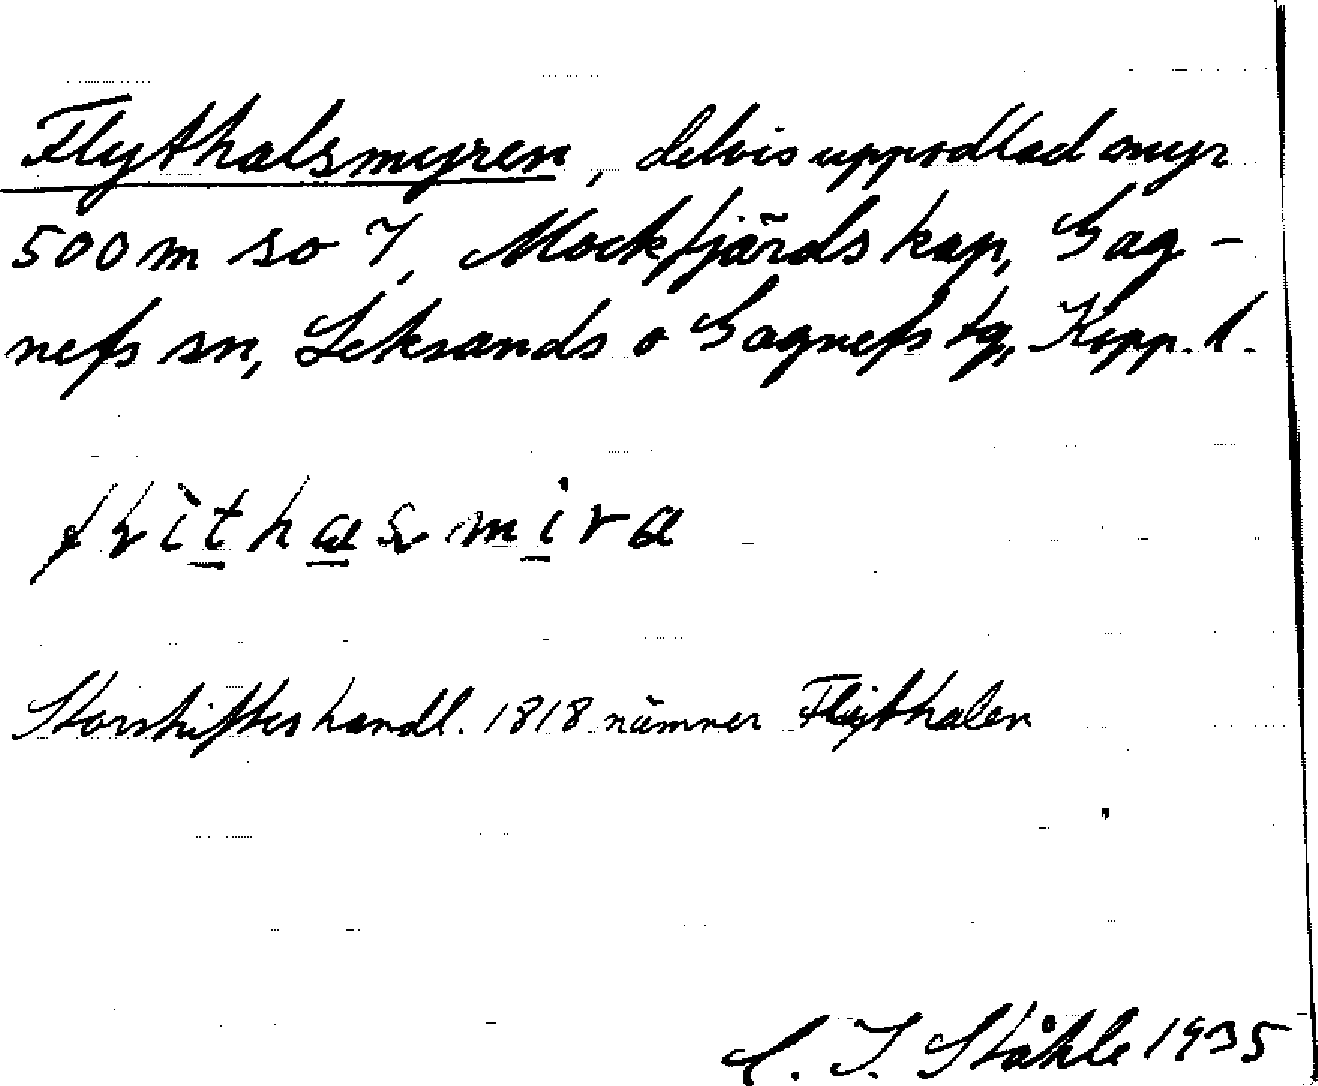 Flythalsmyren, delvis uppodlad myr
500 m so 7, Mockfjärds kap, Gag-
nefs sn, Leksands o Gagnefs tg, Kopp. l.
Storskifteshandl. 1818 nämner Flythalen
C. I. Ståhle 1935